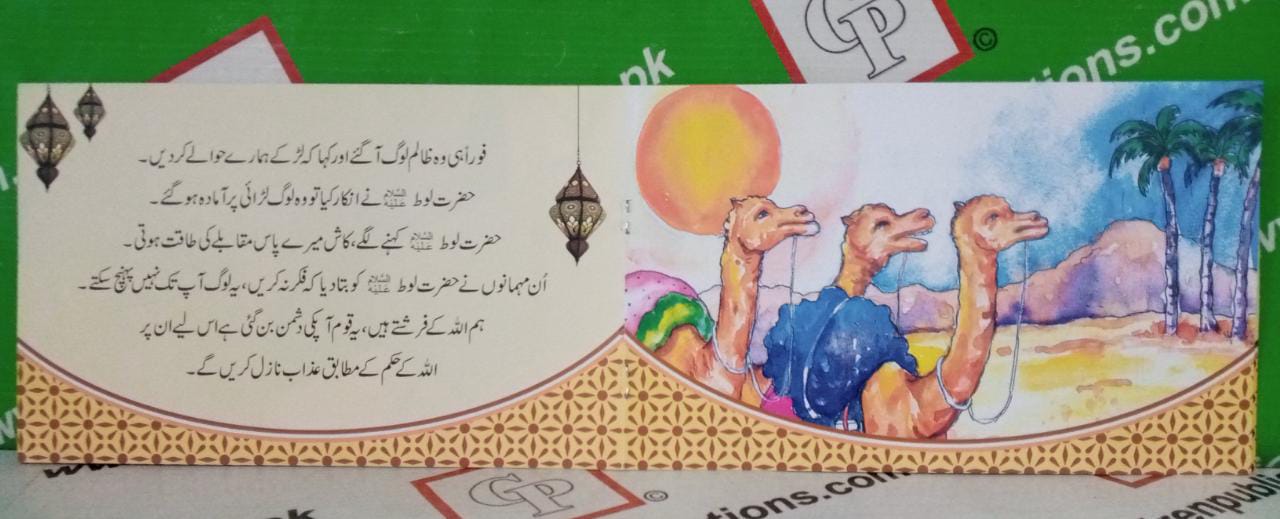 فوراً ہی وہ ظالم لوگ آگئے اور کہا کہ لڑکے ہمارے حوالے کردیں۔
حضرت لوط علیہ السلام نے انکار کیا تو وہ لوگ لڑائی پر آمادہ ہوگئے۔
حضرت لوط علیہ السلام کہنے لگے، کاش میرے پاس مقابلے کی طاقت ہوتی۔
اُن مہمانوں نے حضرت لوط علیہ السلام کو بتادیا کہ فکر نہ کریں، یہ لوگ آپ تک نہیں پہنچ سکتے۔
ہم اللہ کے فرشتے ہیں، یہ قوم آپکی دشمن بن گئی ہے اس لیے ان پر
اللہ کے حکم کے مطابق عذاب نازل کریں گے۔
CP
©
.pk
ions.com
CP
©
tions.com
renpubli
www.
pk